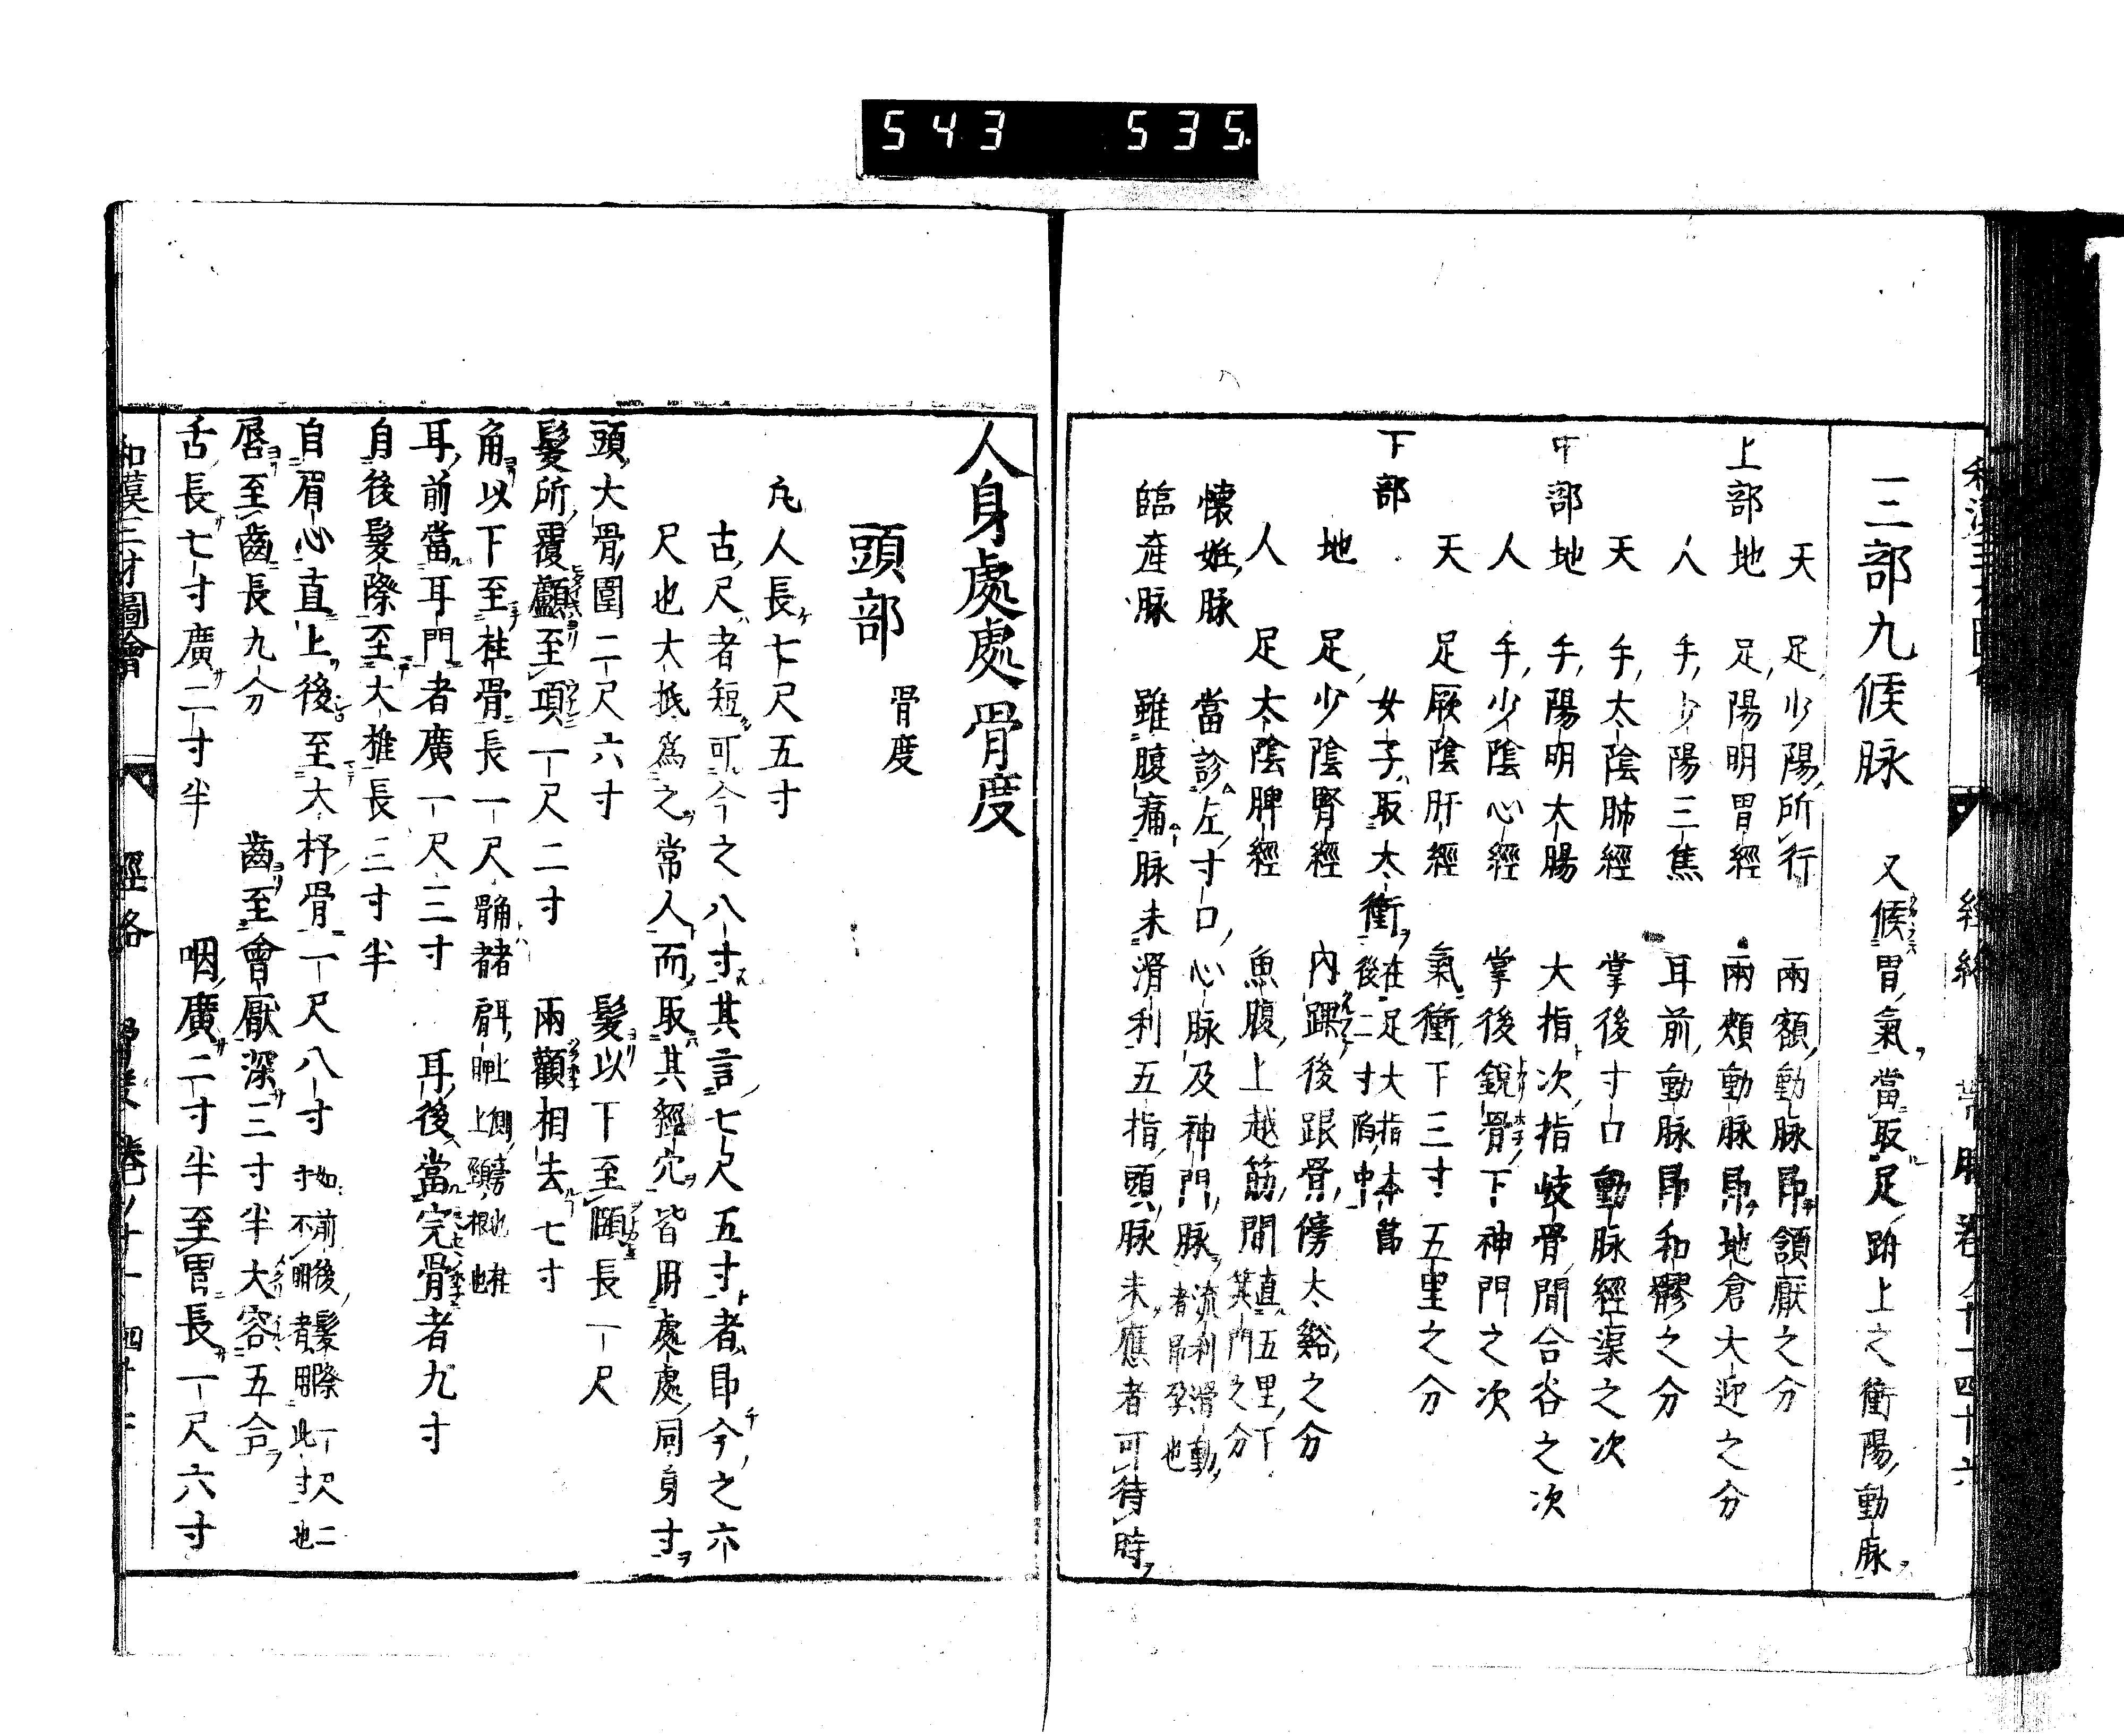 543 535.
三部九候脉 又候胃氣當取足趺上之衝陽動脉
天 足少陽所行 兩額動脉即頷厭之分
上部地 足陽明胃經 兩頰動脉即地倉大迎之分
人 手少陽三焦 耳前動脉即和髎之分
天 手太陰肺經 掌後寸口動脉經渠之次
中部地 手陽明大腸 大指次指岐骨間合谷之次
人 手少陰心經 掌後銳骨下神門之次
天 足厥陰肝經 氣衝下三寸五里之分
下部 女子取太衝在足大指本節後二寸陷中
地 足少陰腎經 內踝後跟骨傍太谿之分
人 足太陰脾經 魚腹上越筋間直五里下箕門之分
懷姙脉 當診左寸口心脉及神門脉流利滑動者即孕也
臨產脉 雖腹痛脉未滑利五指頭脉未應者可待時
人身處處骨度
頭部 骨度
凡人長七尺五寸
古尺者短可今之八寸其言七尺五寸者即今之六
尺也大抵爲之常人而取其經穴皆用處處同身寸
頭大骨圍二尺六寸 髮以下至頤長一尺
髮所覆顱至項一尺二寸 兩顴相去七寸
角以下至柱骨長一尺
耳前當耳門者廣一尺三寸 耳後當完骨者九寸
自後髮際至大椎長三寸半
自眉心直上後至大杼骨一尺八寸 如前後髮際不明者用此寸也
唇至齒長九分 齒至會厭深三寸半大容五合
舌長七寸廣二寸半 咽廣二寸半至胃長一尺六寸
和漢三才圖會 經絡 骨度 卷ノ十一